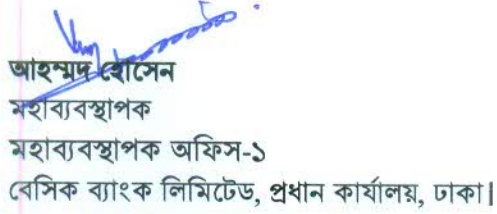 আহম্মদ হোসেন
মহাব্যবস্থাপক
মহাব্যবস্থাপক অফিস-১
বেসিক ব্যাংক লিমিটেড, প্রধান কার্যালয়, ঢাকা।